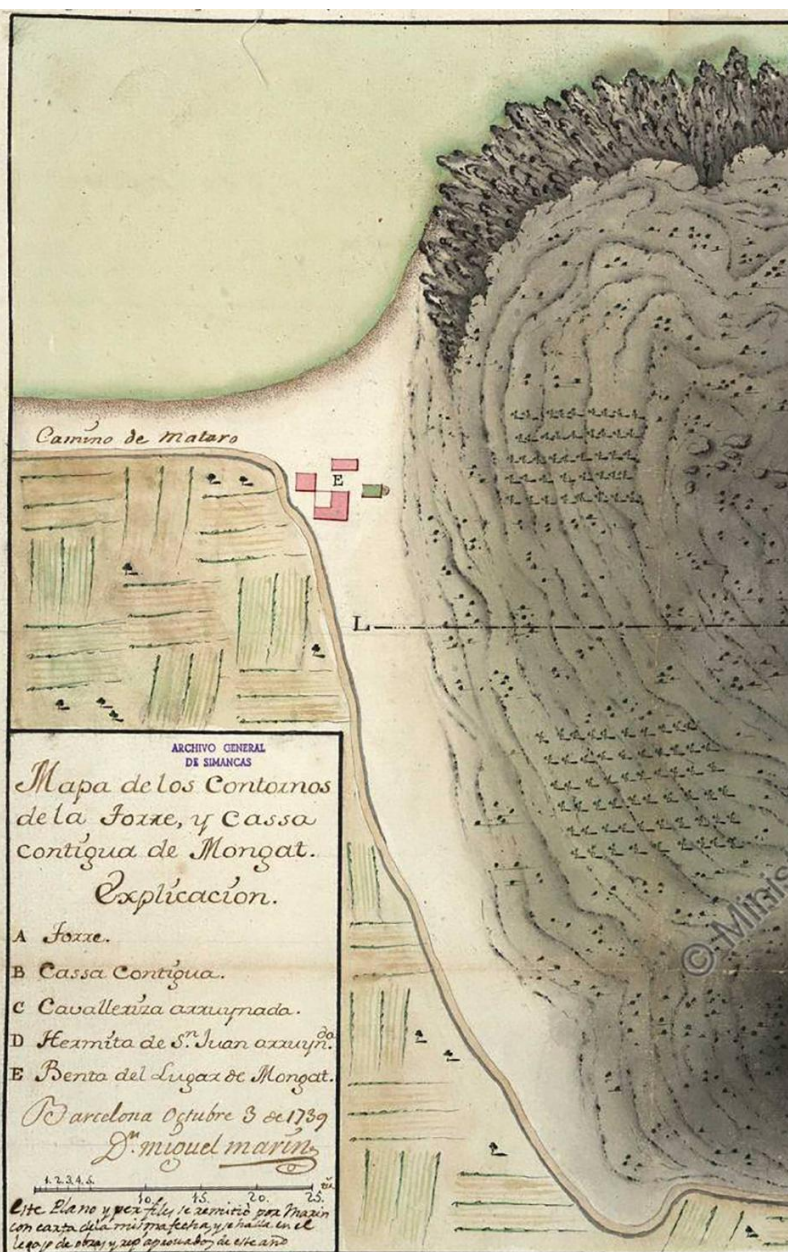 Camino de Mataro
E
L
ARCHIVO GENERAL
DE SIMANCAS
Mapa de los Contornos
de la Torre, y Cassa
contigua de Mongat.
Explicacion.
A Torre.
B Cassa Contigua.
C Cavalleriza arruynada.
D Hermita de Sn. Juan arruynda.
E Benta del Lugar de Mongat.
Barcelona Octubre 3 de 1739
Dn. miguel marin
1. 2. 3. 4. 5. 10. 15. 20. 25.
Este Plano y perfiles se remitió por Marin
con carta de la misma fecha, y se halla en el
legajo de obras y rep aprouados de este año
© Minis